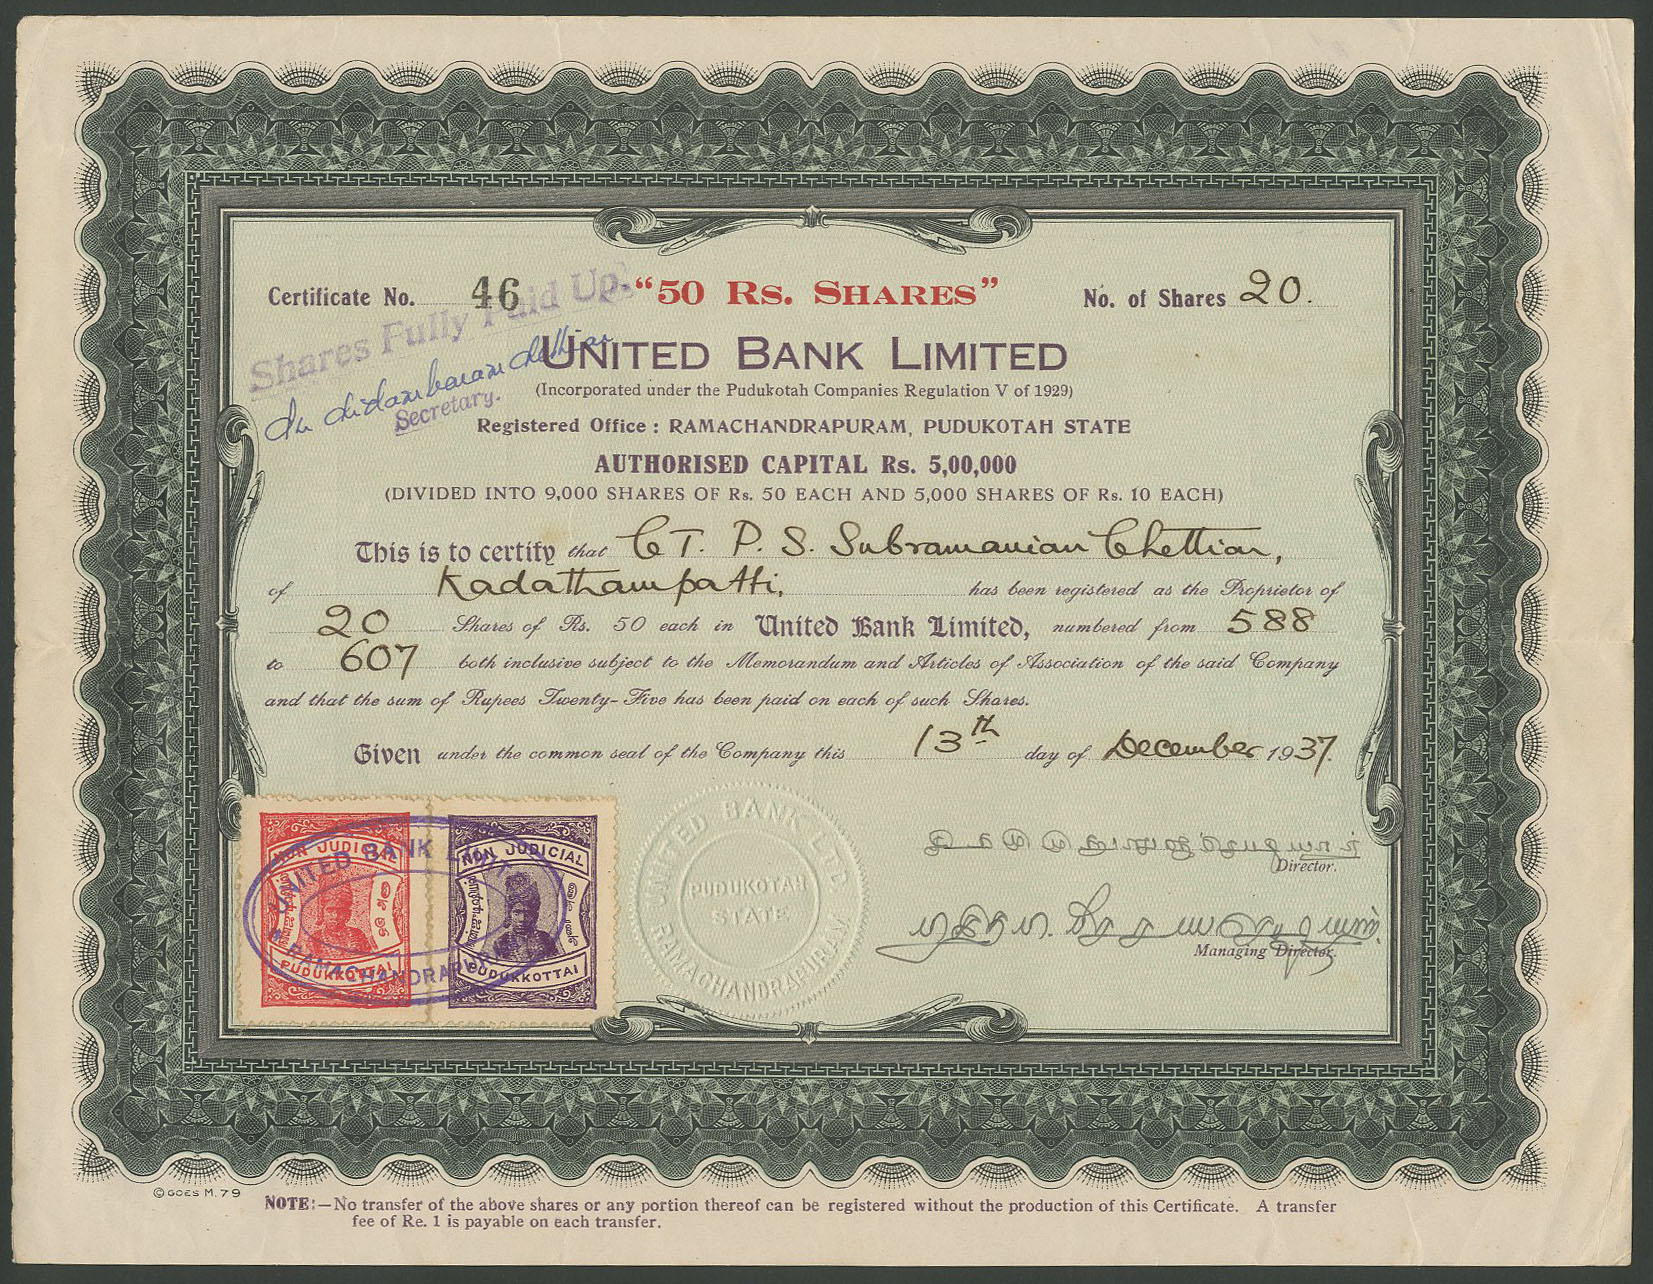 Certificate No. 46
Shares Fully Paid Up.
Chidambaram Chettiar
Secretary.
"50 Rs. SHARES"
No. of Shares 20.
UNITED BANK LIMITED
(Incorporated under the Pudukotah Companies Regulation V of 1929)
Registered Office : RAMACHANDRAPURAM, PUDUKOTAH STATE
AUTHORISED CAPITAL Rs. 5,00,000
(DIVIDED INTO 9,000 SHARES OF Rs. 50 EACH AND 5,000 SHARES OF Rs. 10 EACH)
This is to certify that CT. P. S. Subramanian Chettiar,
of Kadathampatti, has been registered as the Proprietor of
20 Shares of Rs. 50 each in United Bank Limited, numbered from 588
to 607 both inclusive subject to the Memorandum and Articles of Association of the said Company
and that the sum of Rupees Twenty-Five has been paid on each of such Shares.
Given under the common seal of the Company this 13th day of December 1937.
NON JUDICIAL
PUDUKKOTTAI
NON JUDICIAL
PUDUKKOTTAI
UNITED BANK
RAMACHANDRAPURAM
UNITED BANK LTD.
PUDUKOTAH
STATE
RAMACHANDRAPURAM
Director.
Managing Director.
©GOES M. 79
NOTE:—No transfer of the above shares or any portion thereof can be registered without the production of this Certificate. A transfer
fee of Re. 1 is payable on each transfer.